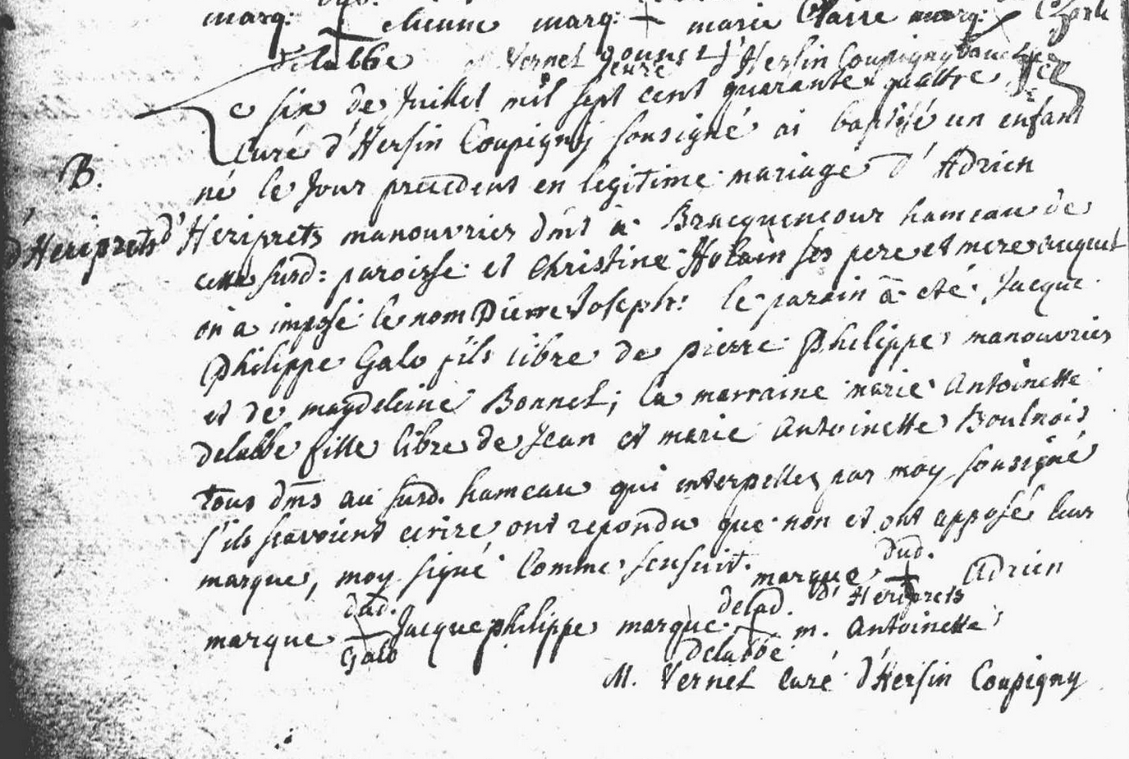 marq: etienne marq: marie Claire marq:
delabbe M. Vernet Curé d'Hersin Coupigny
Le six de Juillet mil sept cent quarante quattre
Curé d'Hersin Coupigny sousigné ai baptisé un enfant
B.
né le Jour precedent en legitime mariage d'Adrien
d'Heriprets
d'Heriprets manouvrier dmt à Bracquencour hameau de
cette susd: paroisse et Christine Holain ses pere et mere auquel
on a imposé le nom Pierre Joseph: le parain a eté Jacque
Philippe Galo fils libre de pierre Philippe manouvrier
et de magdeleine Bonnel; la marraine marie Antoinette
delabbe fille libre de Jean et marie Antoinette Boulnois
tous dmts au susd. hameau qui interpelles par moy sousigné
s'ils scavoient ecrire ont repondu que non et ont apposé leur
marque, moy signé Comme s'ensuit. marque dud. Adrien
d'Heriprets
marque dud. Jacque philippe marque delad. m. Antoinette
Galo delabbe
M. Vernet Curé d'Hersin Coupigny